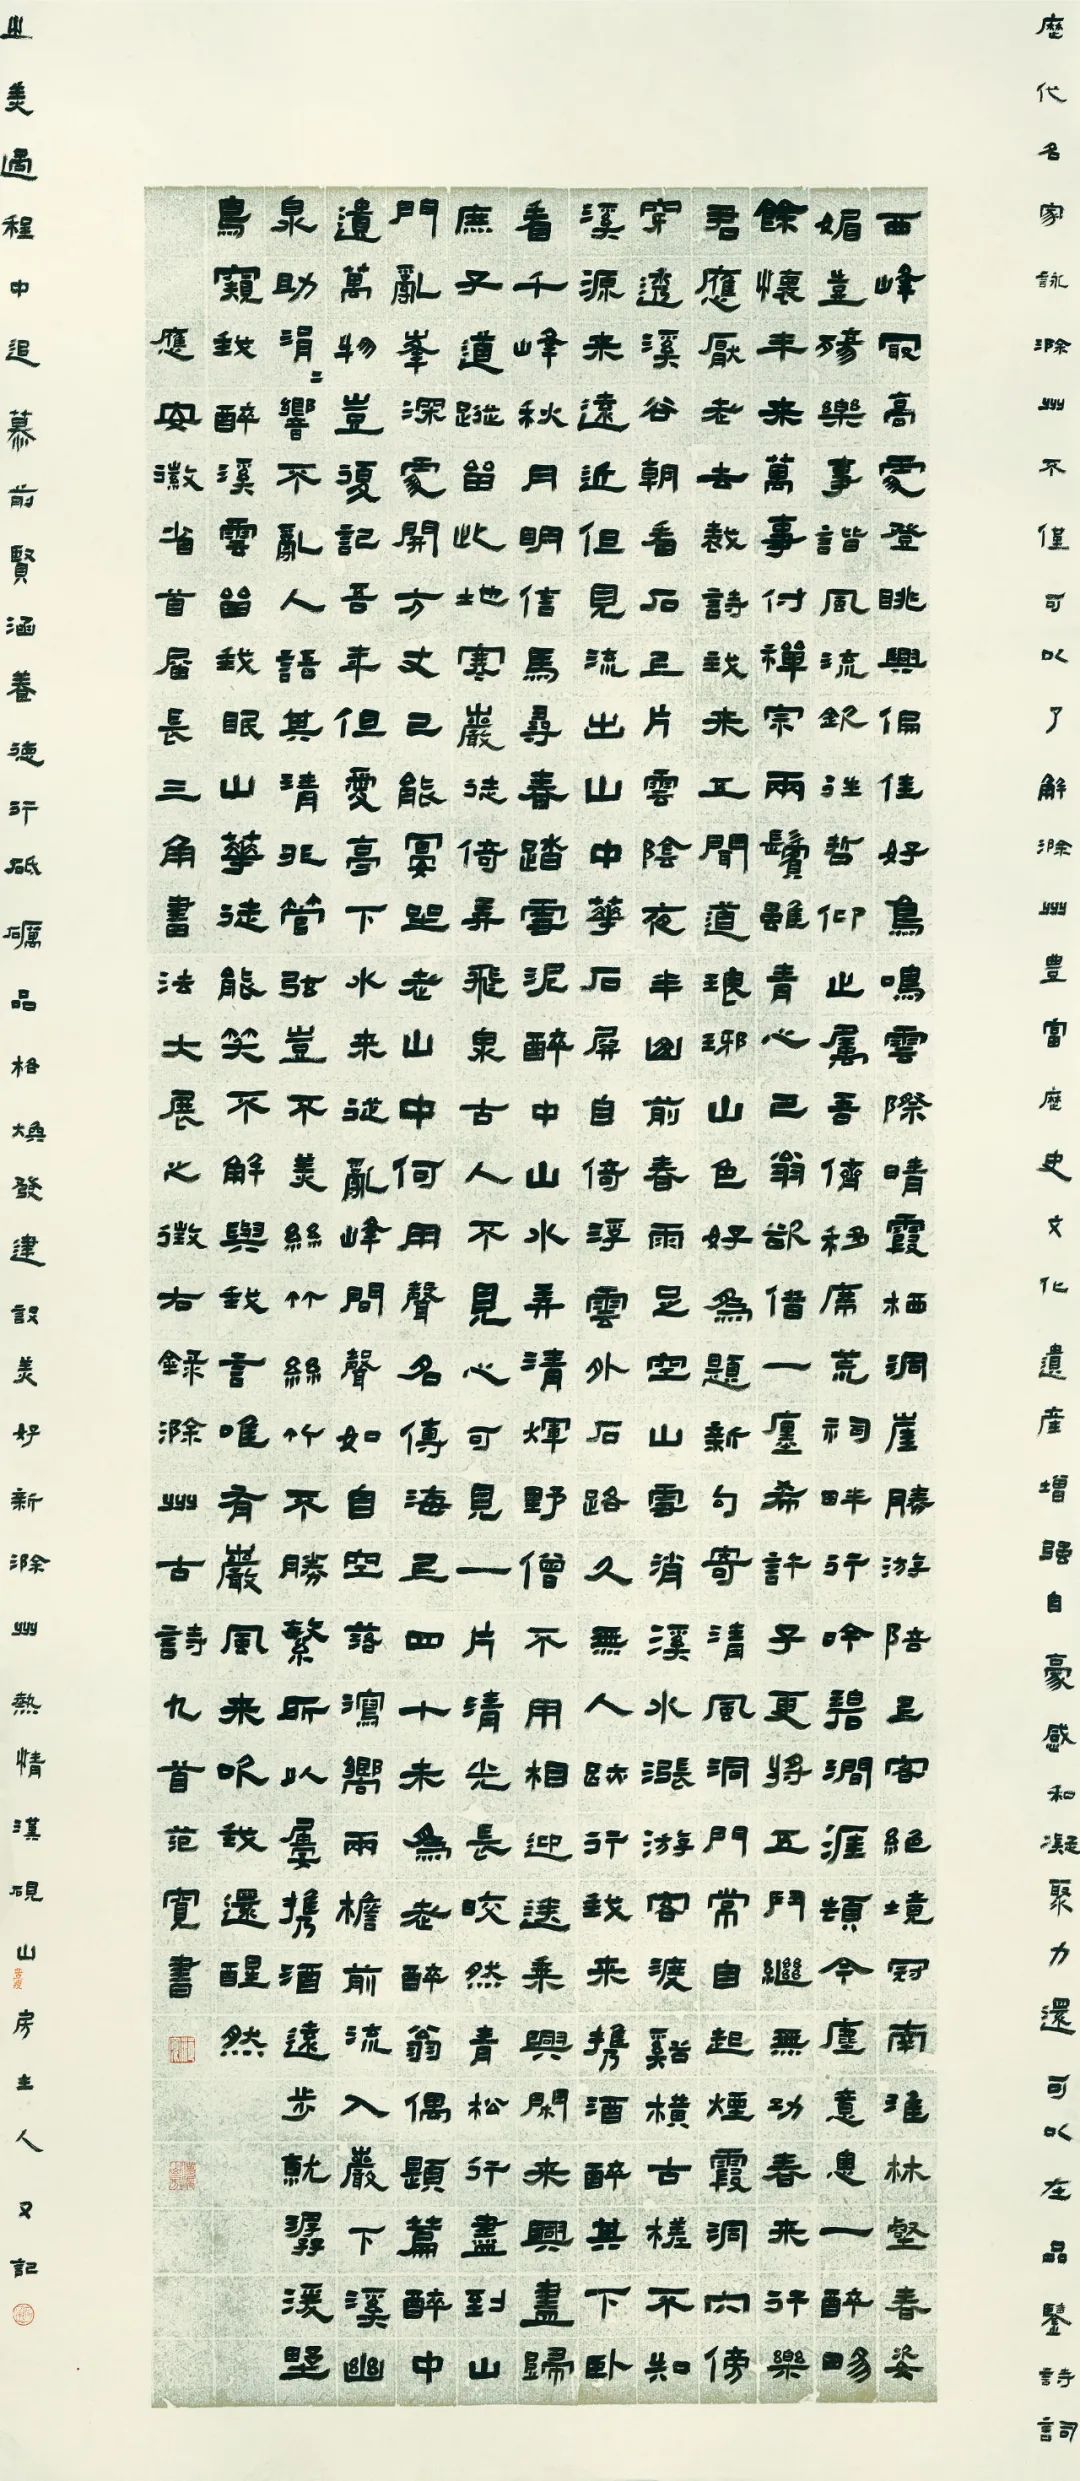 歷代名家詠滁州不僅可以了解滁州豐富歷史文化遺產增强自豪感和凝聚力還可以在品鑒詩詞
西峰最高處登眺興偏佳好鳥鳴雲際晴霞栖洞崖勝游陪上客絕境冠南淮林壑春姿
媚豈殢樂事諧風流欽往哲仰止屬吾儕移席荒祠畔行吟碧澗涯頓令塵意息一醉暢
餘懷年来萬事付禪宗兩鬢雖青心已翁欲借一廛希許子更將五鬥繼無功春来行樂
君應厭老去裁詩我未工聞道琅琊山色好為題新句寄清風洞門常自起煙霞洞穴傍
穿透溪谷朝看石上片雲陰夜半山前春雨足空山雲消溪水漲游客渡谿橫古槎不知
溪源来遠近但見流出山中華石屏自倚浮雲外石路久無人跡行我来携酒醉其下卧
看千峰秋月明信馬尋春踏雪泥醉中山水弄清輝野僧不用相迎送乘興閑来興盡歸
庶子道蹤留此地寒巖徙倚弄飛泉古人不見心可見一片清光長皎然青松行盡到山
門亂峯深處開方丈已能宴坐老山中何用聲名傳海上四十未為老醉翁偶題篇醉中
遺萬物豈復記吾年但愛亭下水来從亂峰間聲如自空落瀉嚮兩檐前流入巖下溪幽
泉助涓二響不亂人語其清非管弦豈不美絲竹絲竹不勝繁所以屢携酒遠步就潺湲野
鳥窺我醉溪雲留我眠山華徒能笑不解與我言唯有巖風来吹我還醒然
應安徽省首届長三角書法大展之徵右錄滁州古詩九首范寬書
之美過程中追慕前賢涵養德行砥礪品格煥發建設美好新滁州熱情漢硯山房主人又記